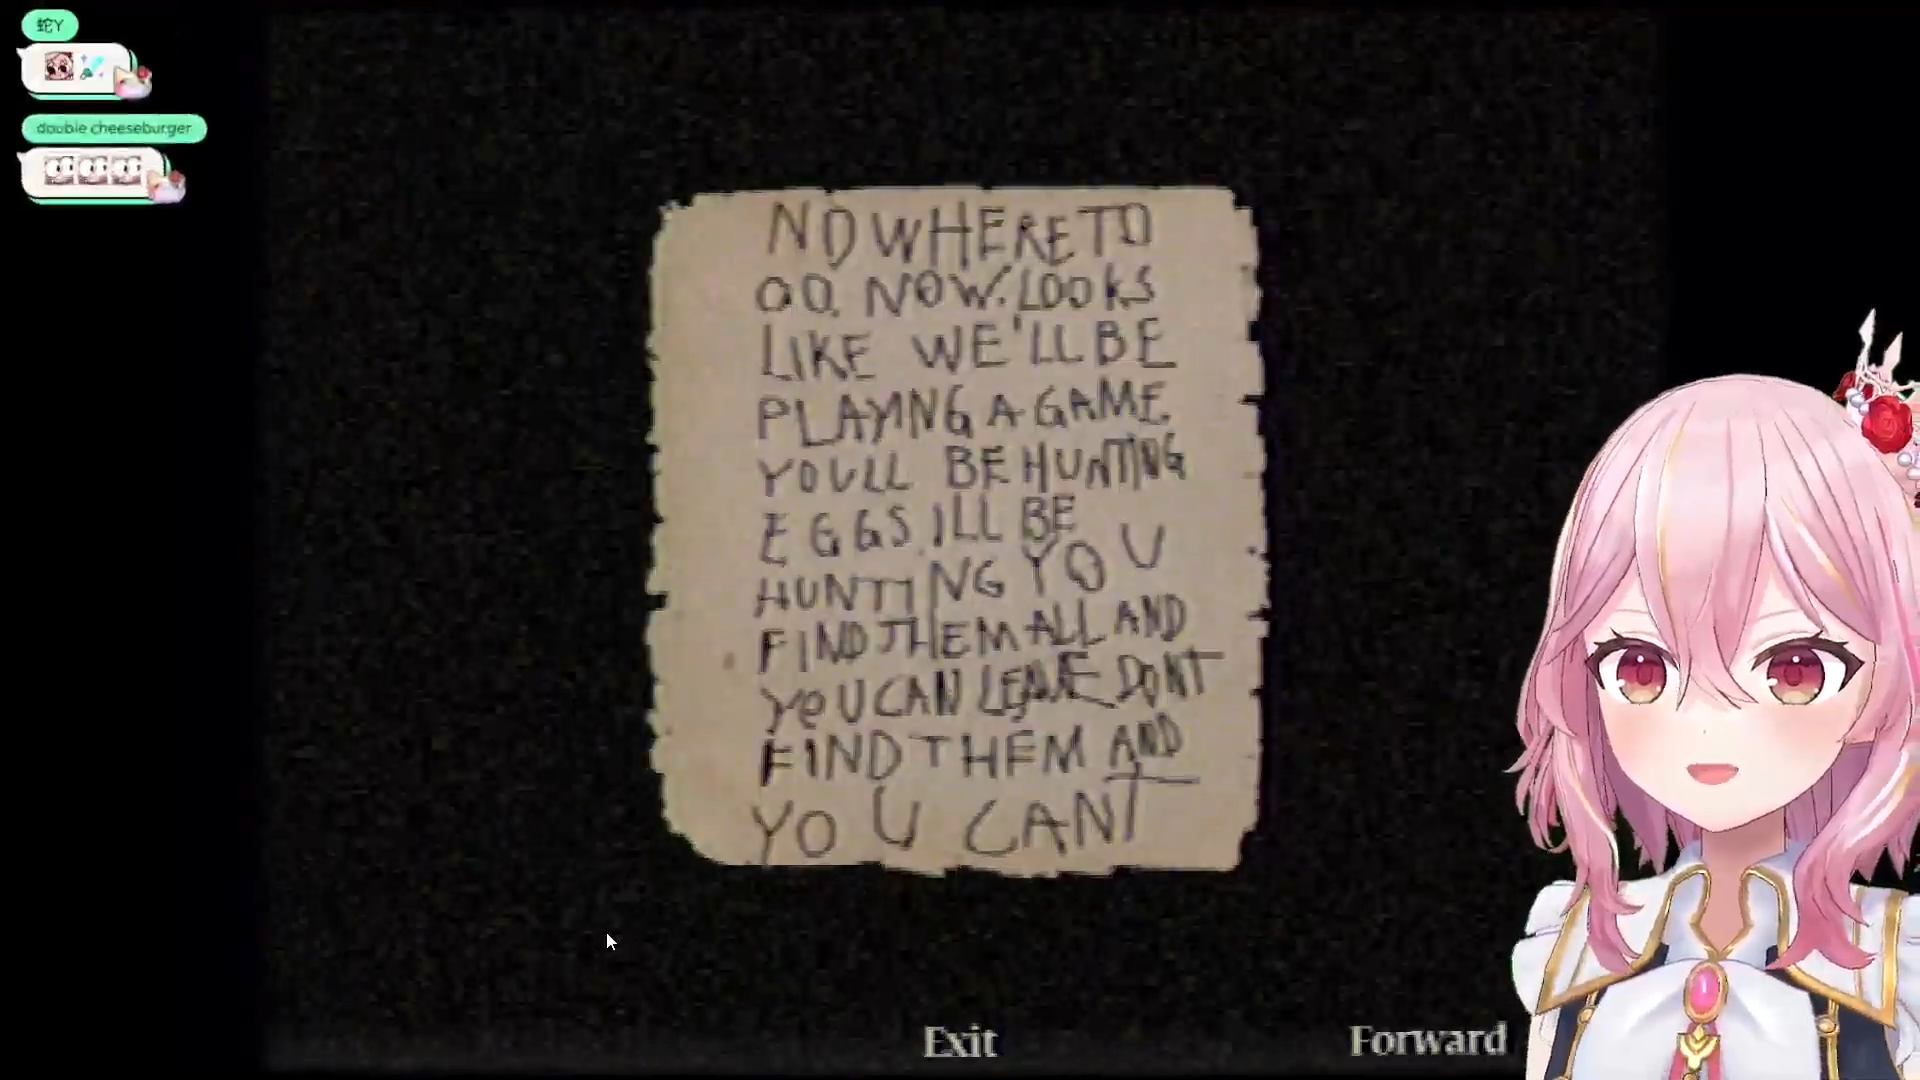 蛇Y
double cheeseburger
NOWHERE TO
GO. NOW. LOOKS
LIKE WE'LL BE
PLAYING A GAME.
YOULL BE HUNTING
EGGS. ILL BE
HUNTING YOU
FIND THEM ALL AND
YOU CAN LEAVE DONT
FIND THEM AND
YOU CANT
Exit
Forward